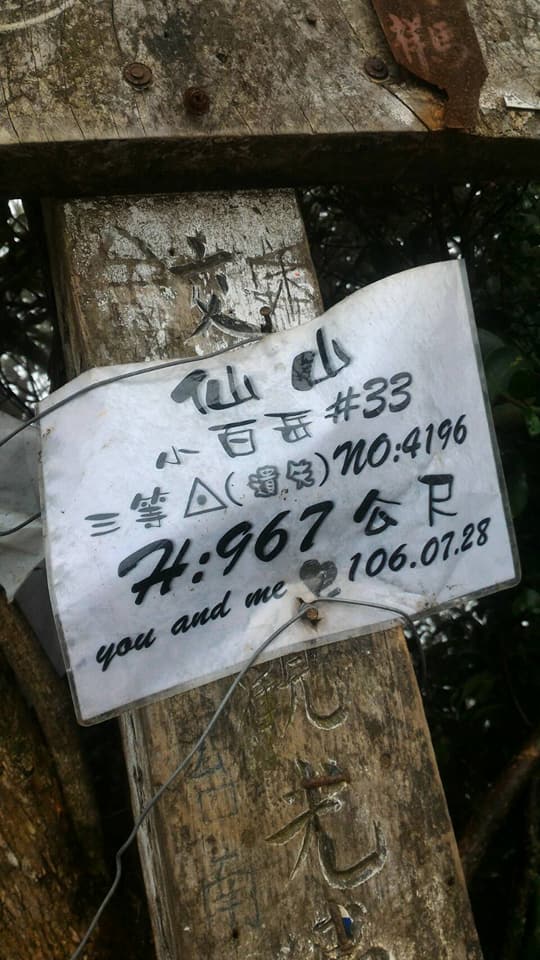 群馬
仙山
小百岳#33
三等△(遺失)NO:4196
H:967公尺
you and me 106.07.28
觀光